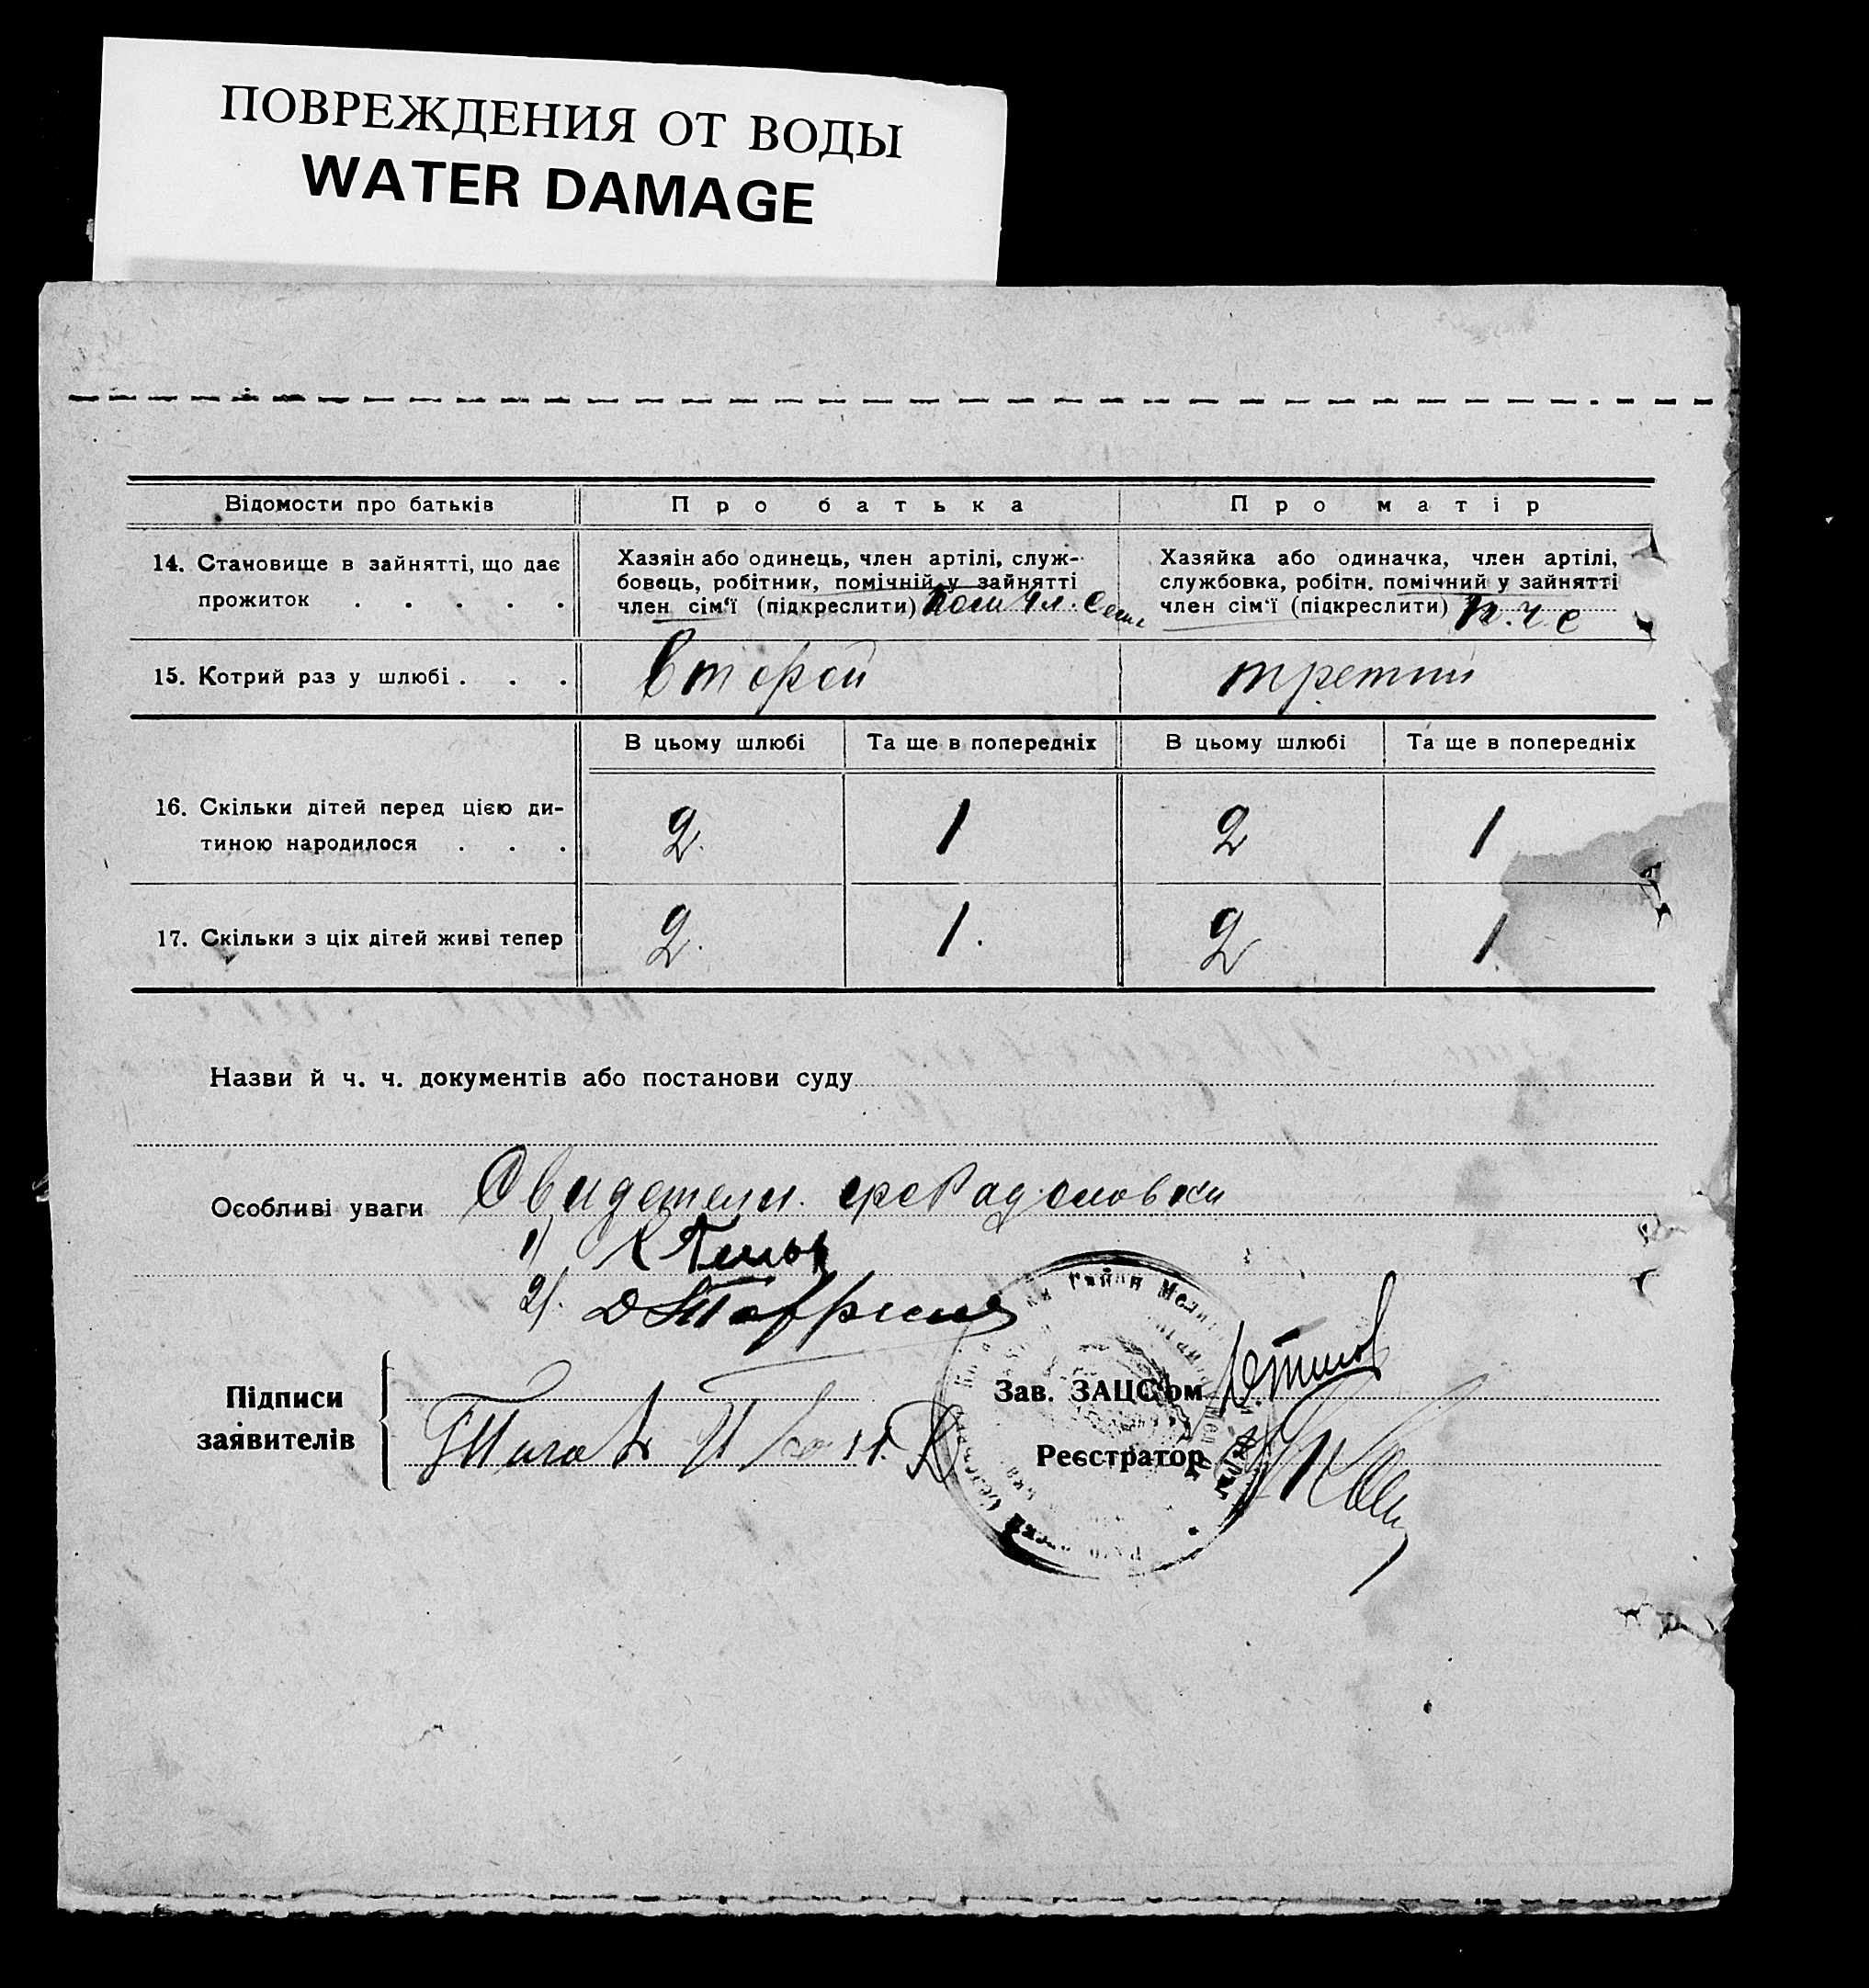 ПОВРЕЖДЕНИЯ ОТ ВОДЫ
WATER DAMAGE
Відомости про батьків
Про батька
Про матір
14. Становище в зайнятті, що дає
прожиток . . . . .
Хазяін або одинець, член артілі, служ-
бовець, робітник, помічній у зайнятті
член сім‘ї (підкреслити) пом чл. семи
Хазяйка або одиначка, член артілі,
службовка, робітн. помічний у зайнятті
член сім‘ї (підкреслити) п. ч. с
15. Котрий раз у шлюбі . . .
второй
третий
В цьому шлюбі
Та ще в попередніх
В цьому шлюбі
Та ще в попередніх
16. Скільки дітей перед цією ди-
тиною народилося . . .
2
1
2
1
17. Скільки з ціх дітей живі тепер
2.
1.
2
1
Назви й ч. ч. документів або постанови суду
Особливі уваги Свидетели
1)
2)
Підписи
заявителів
Зав. ЗАЦС‘ом
Реєстратор